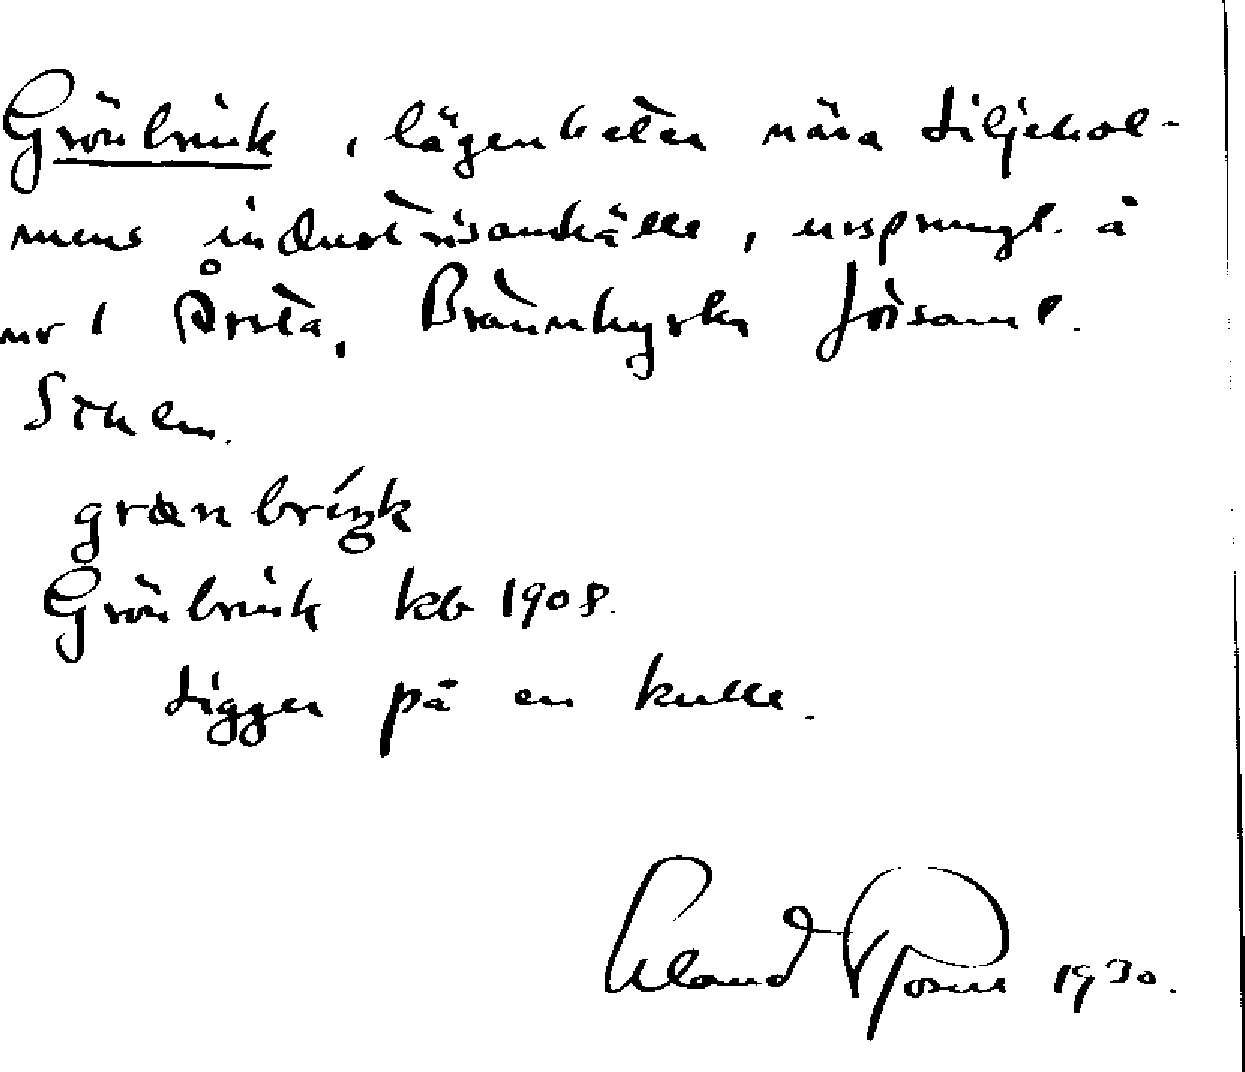 Grönbrink, lägenheten nära Liljehol-
mens industrisamhälle, ursprungl. å
nr 1 Årsta, Brännkyrka förs
Sthlm.
grönbriŋk
Grönbrink kb 1908.
Ligger på en kulle.
1930.